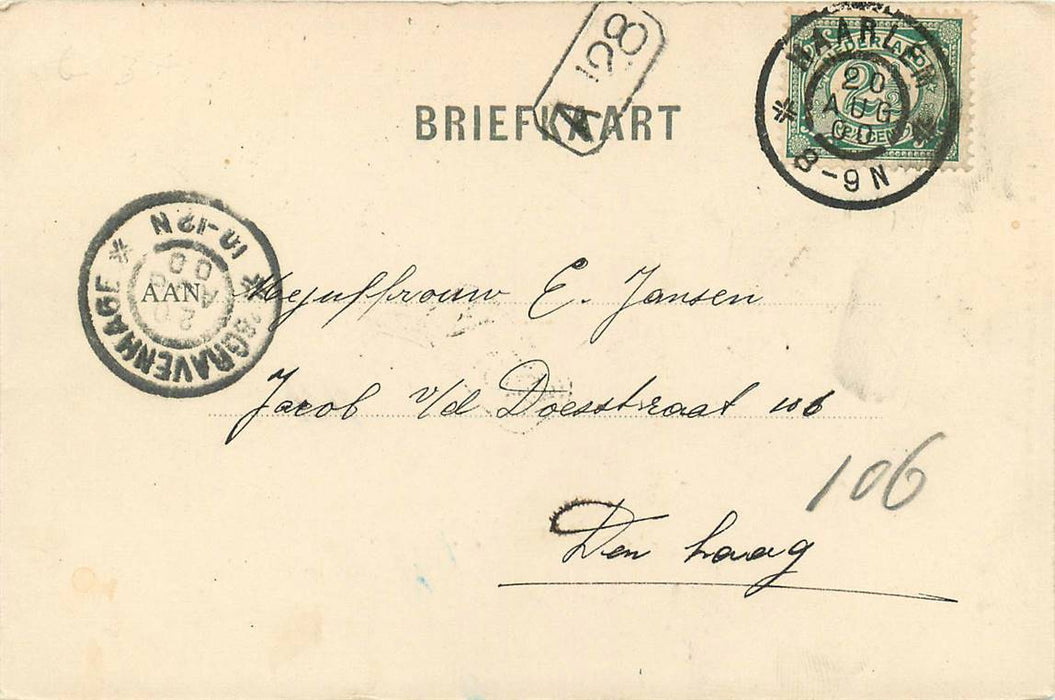 A 128
BRIEFKAART
HAARLEM
20
AUG
00
8-9N
NEDERLAND
2½
'SGRAVENHAGE
20
AUG
00
-12N
AAN
Mejuffrouw E. Jansen
Jacob v/d Doesstraat 106
106
Den haag